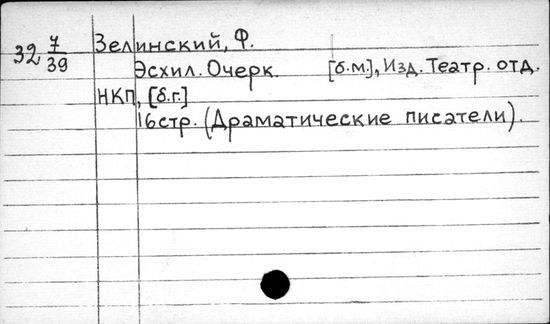 32 7/39 Зелинский, Ф.
Эсхил. Очерк. [б.м.], Изд. Театр. отд.
НКП, [б.г.]
16 стр. (Драматические писатели).